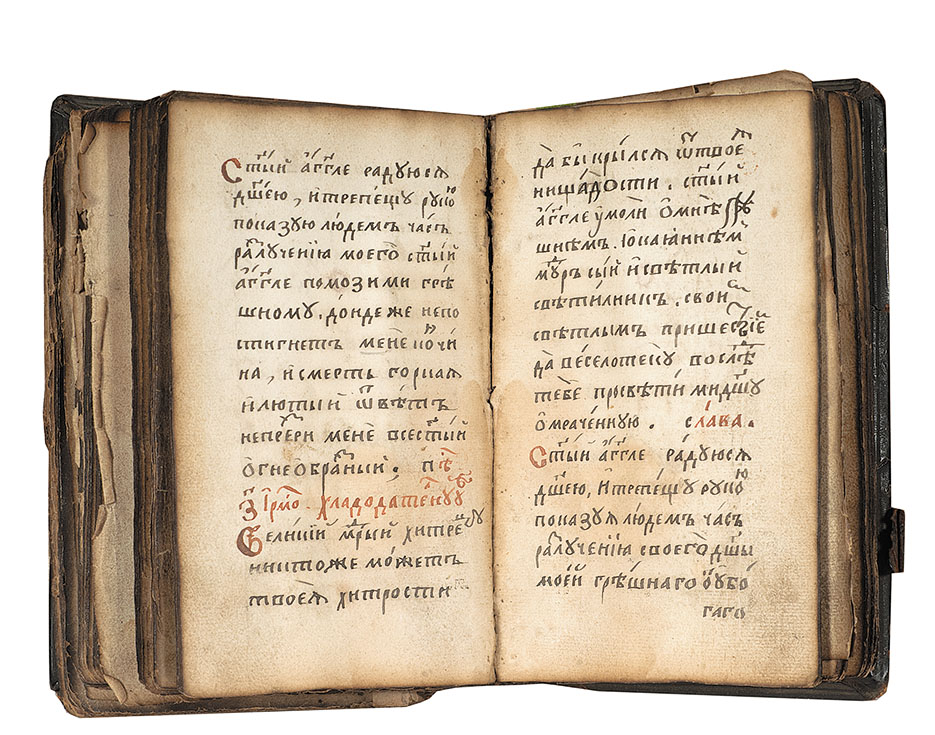 Ст҃ый а́гг҃ле радꙋюся
дш҃ею, и҆трепе́щꙋ рꙋкою
показꙋю лю́демъ ча́съ
разлꙋче́нїѧ моегѡ̀ ст҃ый
а́гг҃ле помозѝми грѣ́
шномꙋ, до́ндеже непо
стигнетъ менѐ ко́нчи
на, и҆смерть горкая
и҆лютый ѿвѣ́тъ
непре́зри менѐ всест҃ый
о҆гнеобра́зный. пѣ́
з҃ І҆рмо́ хладода́телнꙋю
Вели́кїй мꙋ́дрый хитре́цъ
ничто́же мо́жетъ
твоеѧ̀ хи́трости
да бы кры́лся ѿтвоеѧ
нища́дости. ст҃ый
а́гг҃ле ᲂу҆молѝ ѡ҆мнѣ̀
шнѣмъ. І҆ѡкаѧ́ннѣмъ
мꙋ́дръ сы́й и҆свѣ́тлый
свѣти́лникъ. свои
свѣ́тлымъ пришествїе
да ве́селотекꙋ́ вослѣ́
тебѐ просвѣтѝ мидш҃ꙋ
ѡ҆мраче́ннꙋю. сла́ва.
Ст҃ый а́гг҃ле радꙋюся
дш҃ею, и҆трепе́щꙋ рꙋкою
показꙋя лю́демъ ча́съ
разлꙋче́нїѧ своегѡ̀ дш҃ы
мое́й грѣ́шнаго ᲂу҆бо́
гаго